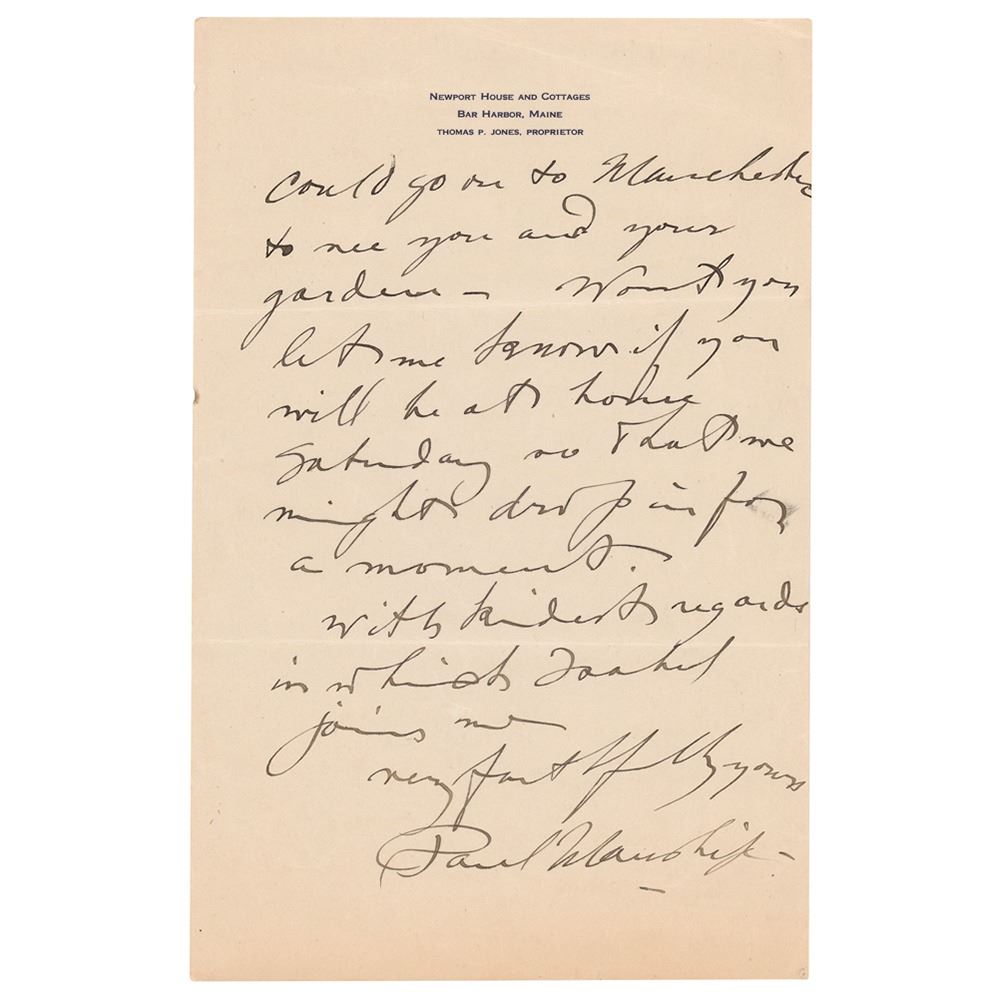 NEWPORT HOUSE AND COTTAGES
BAR HARBOR, MAINE
THOMAS P. JONES, PROPRIETOR
could go on to Manchester
to see you and your
garden — Wont you
let me know if you
will be at home
Saturday so that we
might drop in for
a moment.
With kindest regards
in which Isabel
joins me
very faithfully yours
Paul Manship —